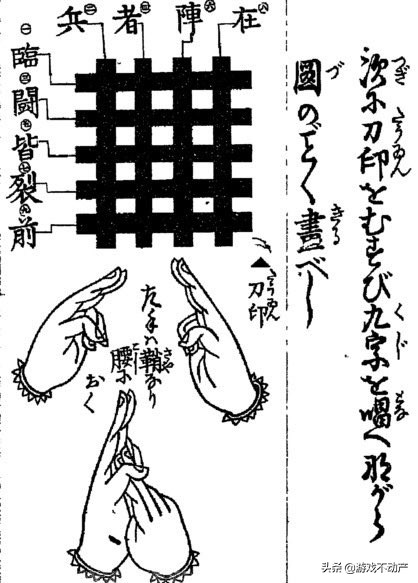 次に刀印をむすび九字を唱へ那がら
圖のごとく畫べし
在 陣 者 兵
臨
闘
皆
裂
前
▲刀印
左手ハ鞘なり
腰に
おく
头条 @游戏不动产